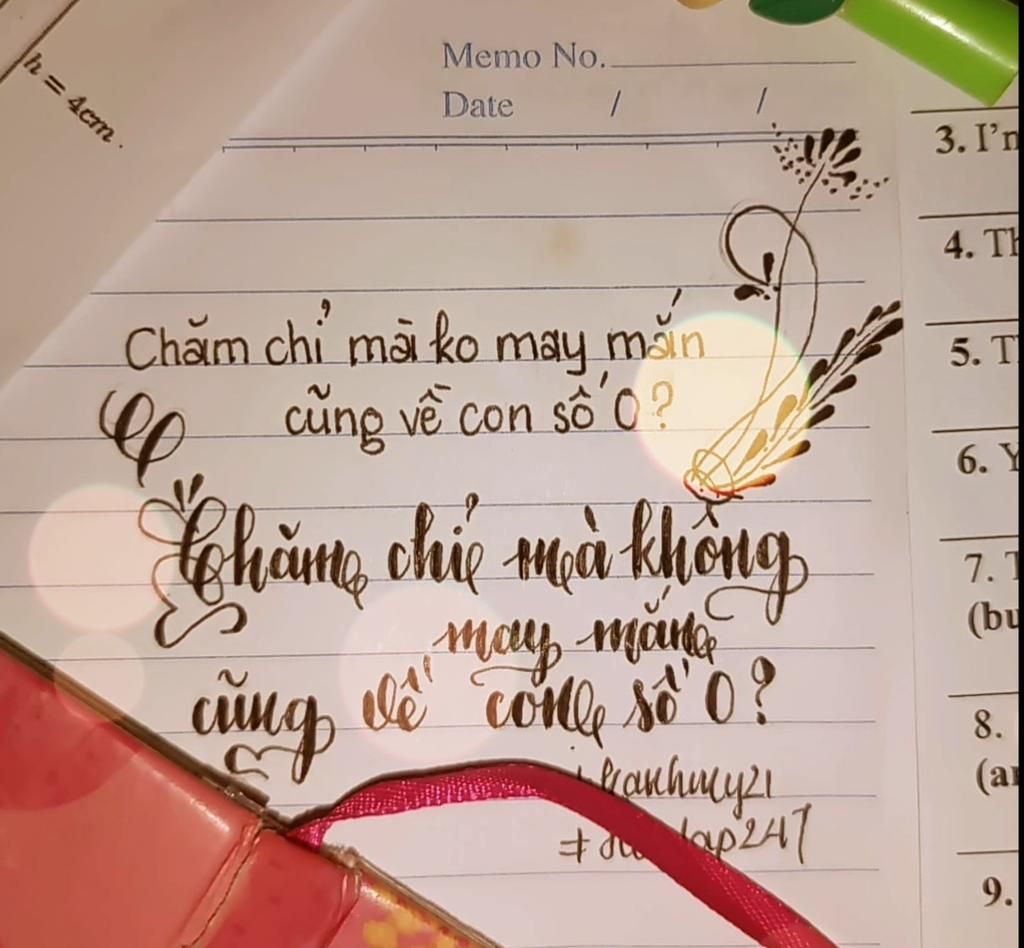 h = 4cm.
Memo No.
Date / /
Chăm chỉ mà ko may mắn
cũng về con số 0?
Chăm chỉ mà không
may mắn
cũng về con số 0?
3. I'm
4. Th
5. T
6. Y
7. T
(bu
8.
(an
9.